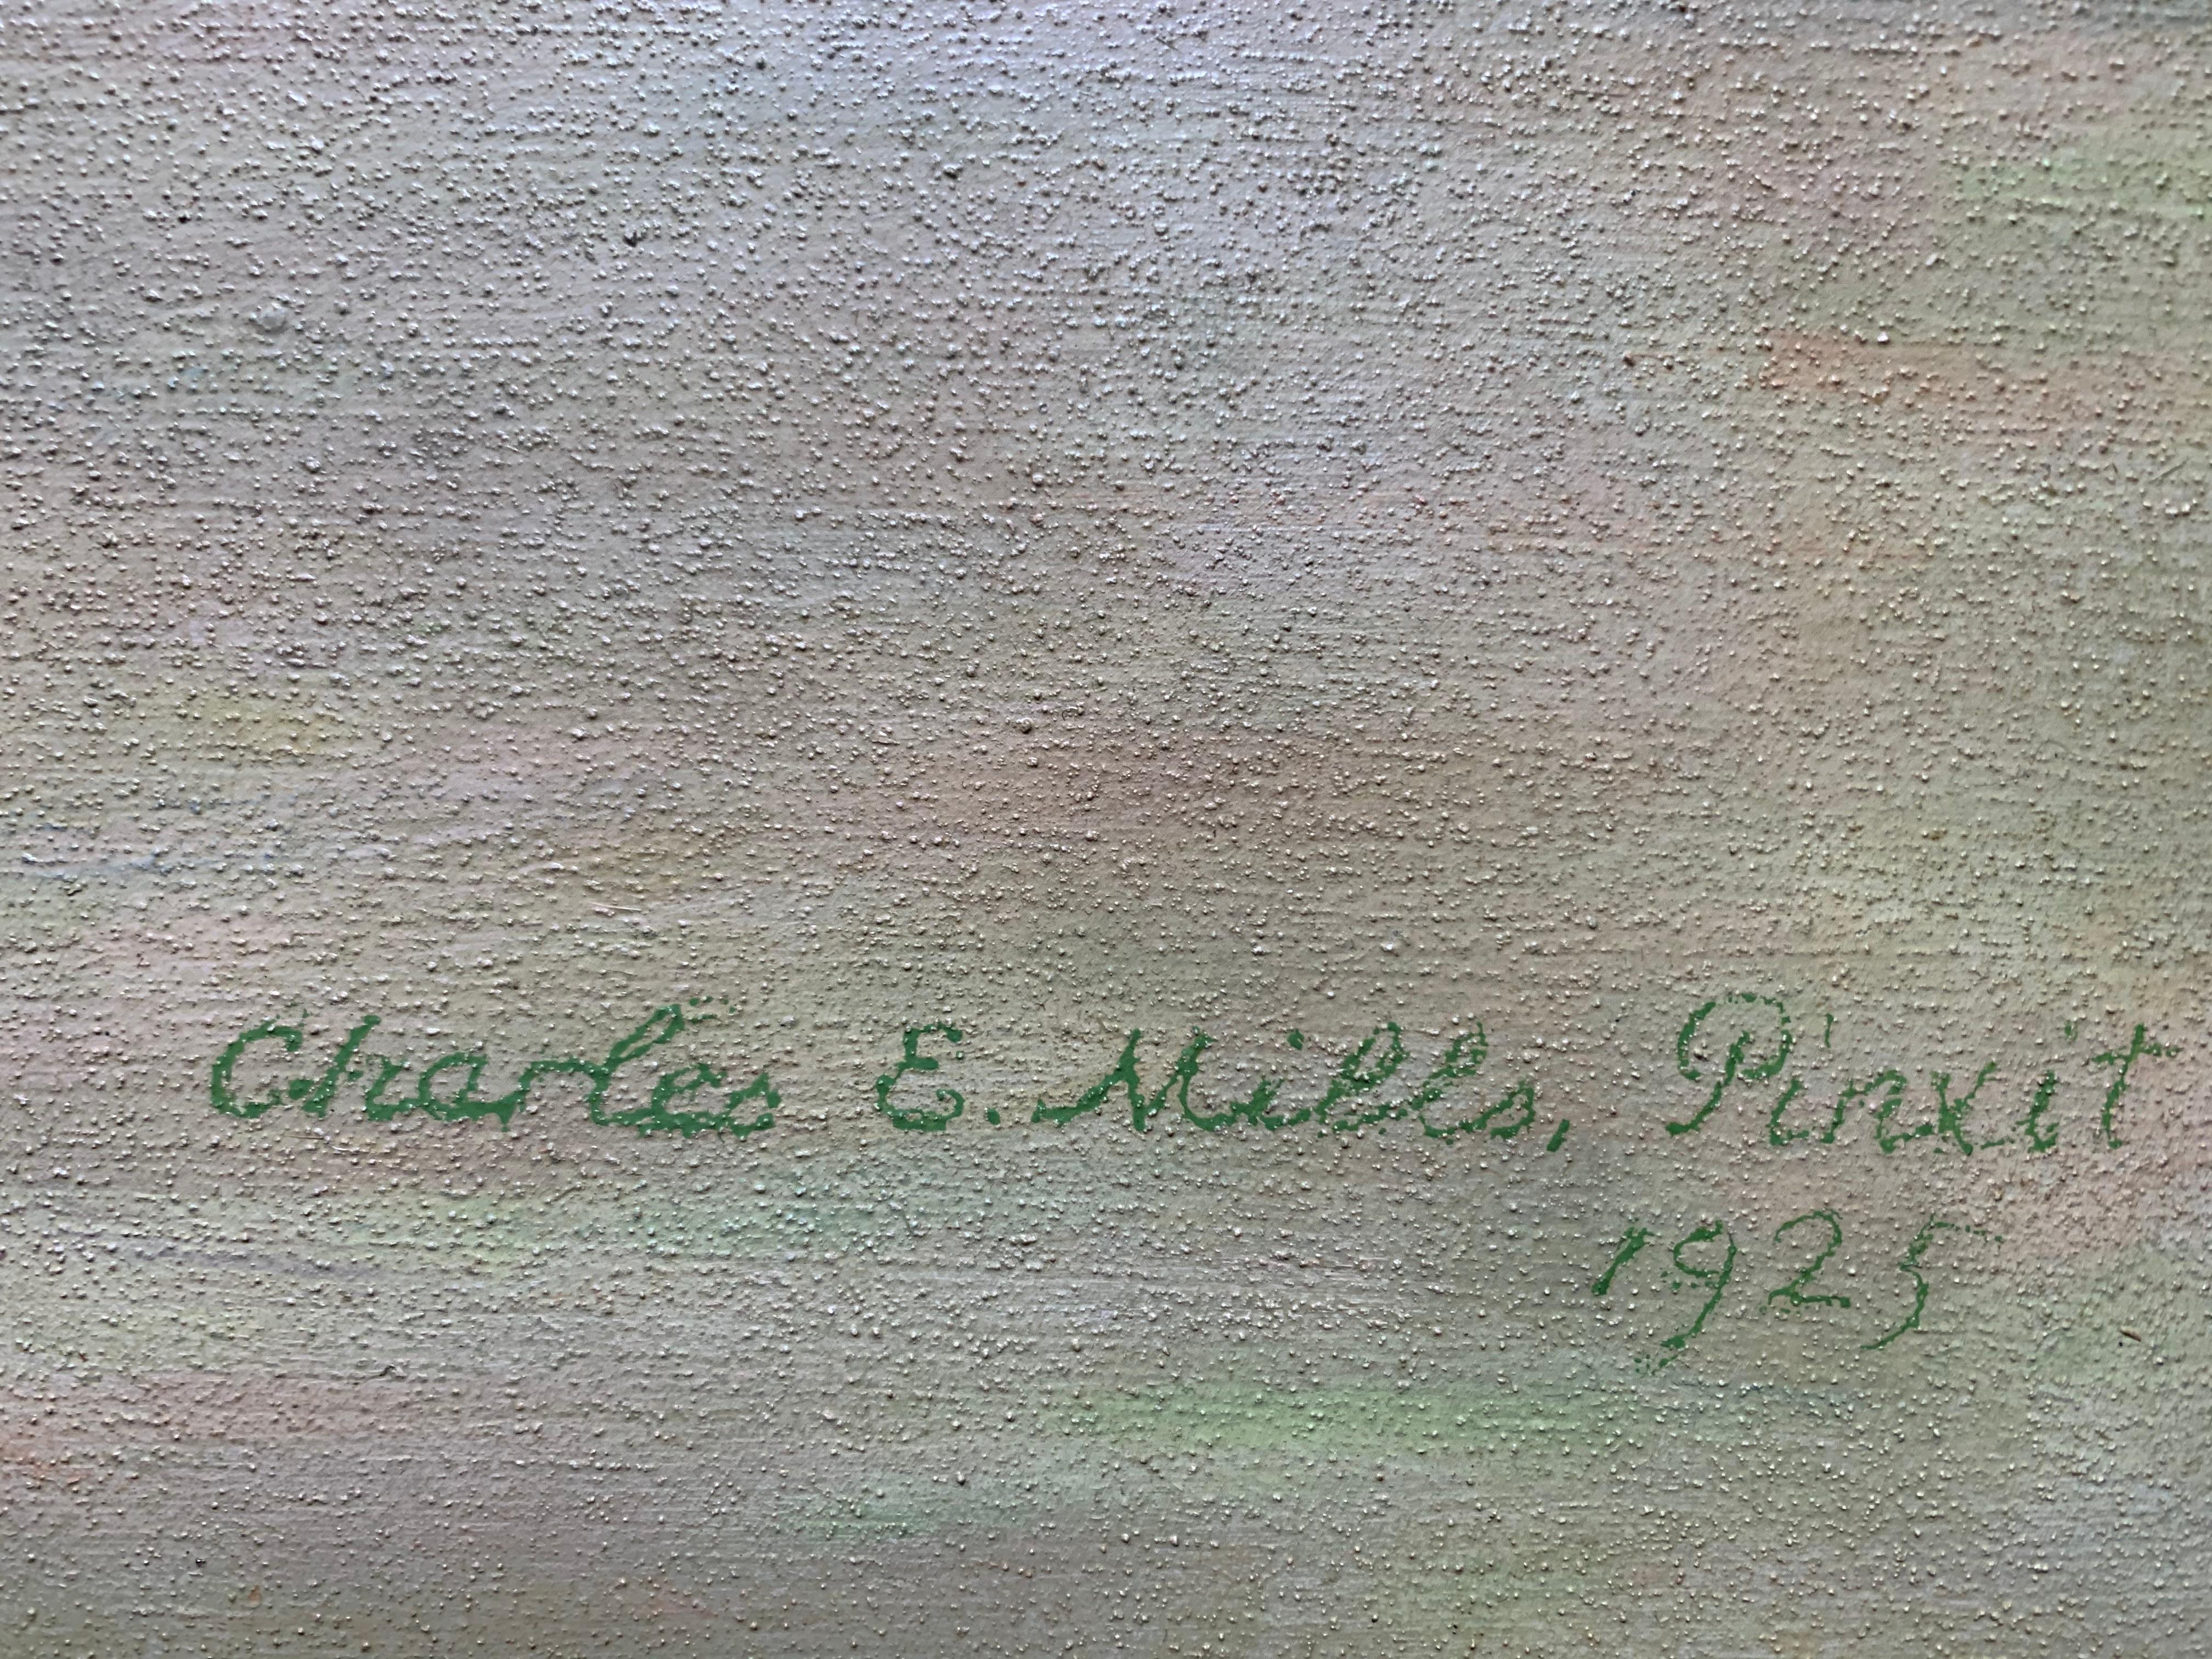 Charles E. Mills, Pinxit
1925